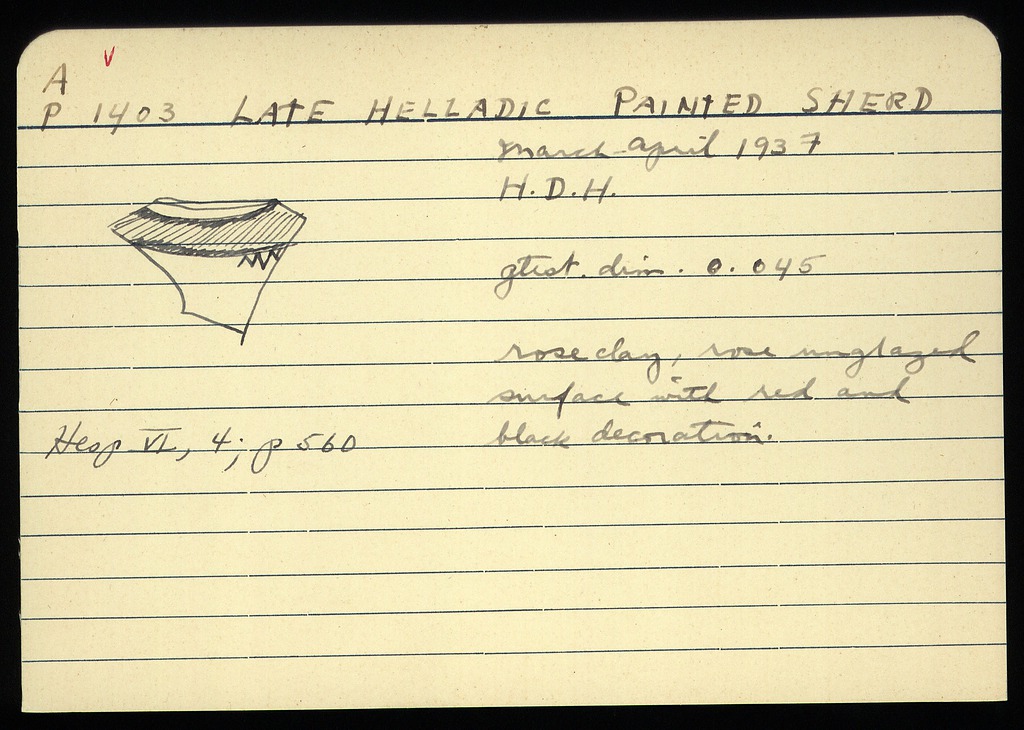 A v
P 1403 LATE HELLADIC PAINTED SHERD
March-April 1937
H.D.H.
gtest. dim. 0.045
rose clay, rose unglazed
surface with red and
black decoration.
Hesp VI, 4; p 560